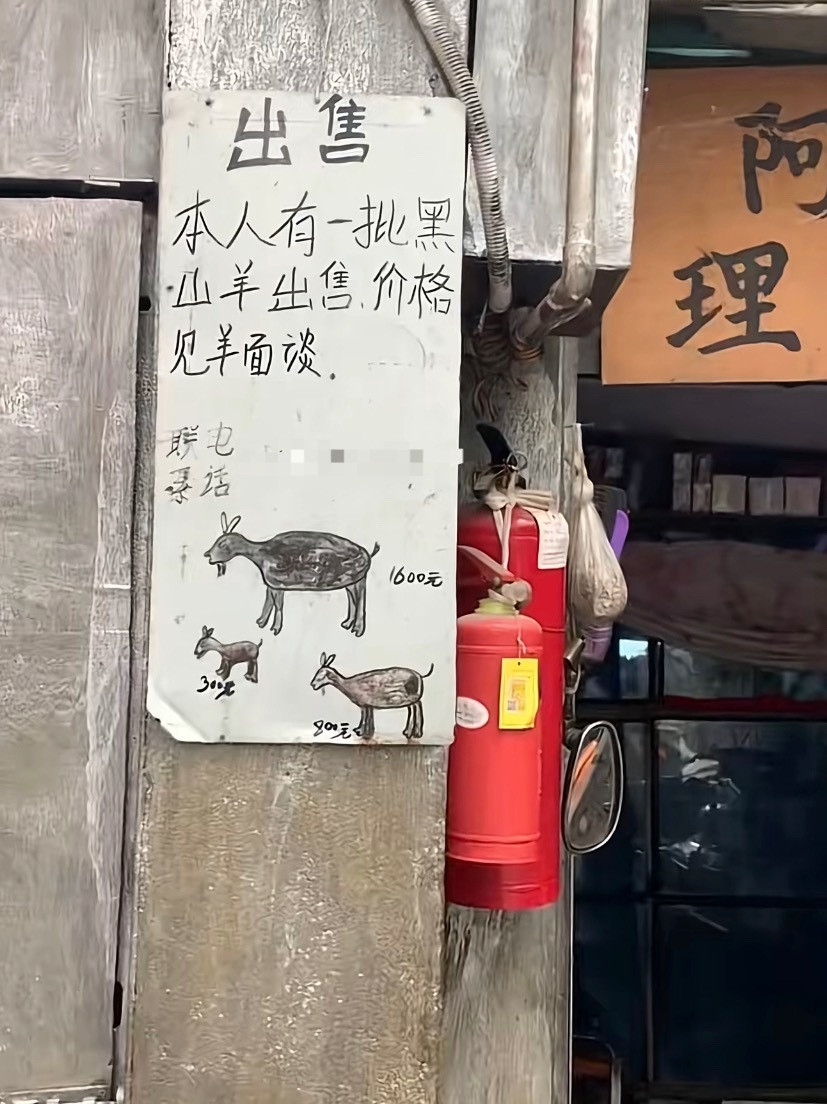 出售
本人有一批黑
山羊出售.价格
见羊面谈.
联电
系话
1600元
300元
800元
阿
理